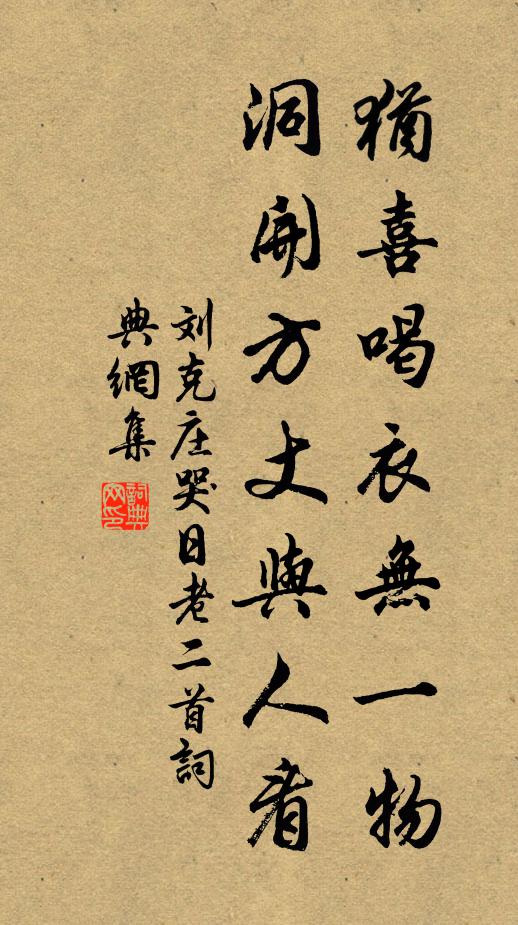 猶喜喝衣無一物
洞開方丈與人看
刘克庄哭日老二首詞
典網集
詞典
网印